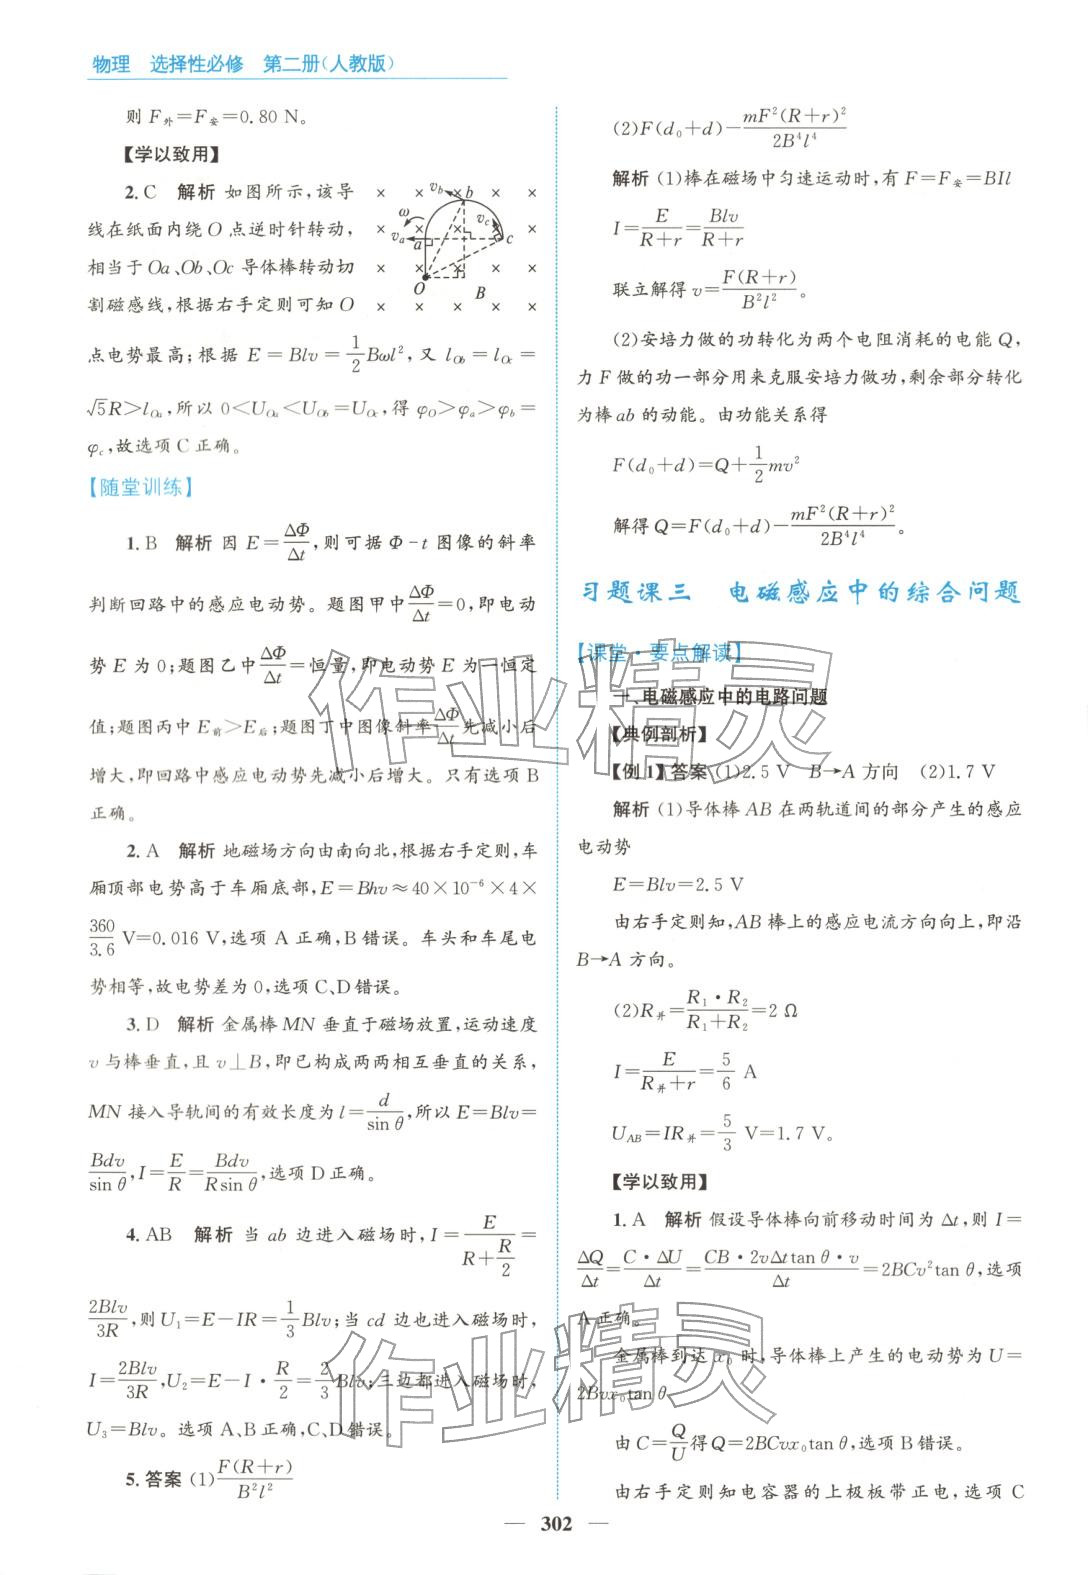 物理　选择性必修　第二册(人教版)
则 F外=F安=0.80 N。
【学以致用】
2. C　解析　如图所示，该导
线在纸面内绕 O 点逆时针转动，
相当于 Oa、Ob、Oc 导体棒转动切
割磁感线，根据右手定则可知 O
点电势最高；根据 E=Blv=1/2 Bωl²，又 l_Ob=l_Oc=
√5R>l_Oa，所以 0<U_Oa<U_Ob=U_Oc，得 φ_O>φ_a>φ_b=
φ_c，故选项 C 正确。
ω v_a v_b v_c a b c O B
【随堂训练】
1. B　解析　因 E=ΔΦ/Δt，则可据 Φ-t 图像的斜率
判断回路中的感应电动势。题图甲中 ΔΦ/Δt=0，即电动
势 E 为 0；题图乙中 ΔΦ/Δt=恒量，即电动势 E 为一恒定
值；题图丙中 E前>E后；题图丁中图像斜率 ΔΦ/Δt 先减小后
增大，即回路中感应电动势先减小后增大。只有选项 B
正确。
2. A　解析　地磁场方向由南向北，根据右手定则，车
厢顶部电势高于车厢底部，E=Bhv≈40×10⁻⁶×4×
360/3.6 V=0.016 V，选项 A 正确，B 错误。车头和车尾电
势相等，故电势差为 0，选项 C、D 错误。
3. D　解析　金属棒 MN 垂直于磁场放置，运动速度
v 与棒垂直，且 v⊥B，即已构成两两相互垂直的关系，
MN 接入导轨间的有效长度为 l=d/sin θ，所以 E=Blv=
Bdv/sin θ，I=E/R=Bdv/(Rsin θ)，选项 D 正确。
4. AB　解析　当 ab 边进入磁场时，I=E/(R+R/2)=
2Blv/3R，则 U₁=E-IR=1/3 Blv；当 cd 边也进入磁场时，
I=2Blv/3R，U₂=E-I·R/2=2/3 Blv；三边都进入磁场时，
U₃=Blv。选项 A、B 正确，C、D 错误。
5. 答案　(1) F(R+r)/B²l²
(2)F(d₀+d)-mF²(R+r)²/2B⁴l⁴
解析　(1)棒在磁场中匀速运动时，有 F=F安=BIl
I=E/(R+r)=Blv/(R+r)
联立解得 v=F(R+r)/B²l²。
(2)安培力做的功转化为两个电阻消耗的电能 Q，
力 F 做的功一部分用来克服安培力做功，剩余部分转化
为棒 ab 的动能。由功能关系得
F(d₀+d)=Q+1/2 mv²
解得 Q=F(d₀+d)-mF²(R+r)²/2B⁴l⁴。
习题课三　电磁感应中的综合问题
【课堂·要点解读】
一、电磁感应中的电路问题
【典例剖析】
【例 1】答案　(1)2.5 V　B→A 方向　(2)1.7 V
解析　(1)导体棒 AB 在两轨道间的部分产生的感应
电动势
E=Blv=2.5 V
由右手定则知，AB 棒上的感应电流方向向上，即沿
B→A 方向。
(2)R并=R₁·R₂/(R₁+R₂)=2 Ω
I=E/(R并+r)=5/6 A
U_AB=IR并=5/3 V=1.7 V。
【学以致用】
1. A　解析　假设导体棒向前移动时间为 Δt，则 I=
ΔQ/Δt=C·ΔU/Δt=CB·2vΔttan θ·v/Δt=2BCv²tan θ，选项
A 正确。
金属棒到达 x₀ 时，导体棒上产生的电动势为 U=
2Bvx₀tan θ
由 C=Q/U 得 Q=2BCvx₀tan θ，选项 B 错误。
由右手定则知电容器的上极板带正电，选项 C
作业精灵
作业精灵
302